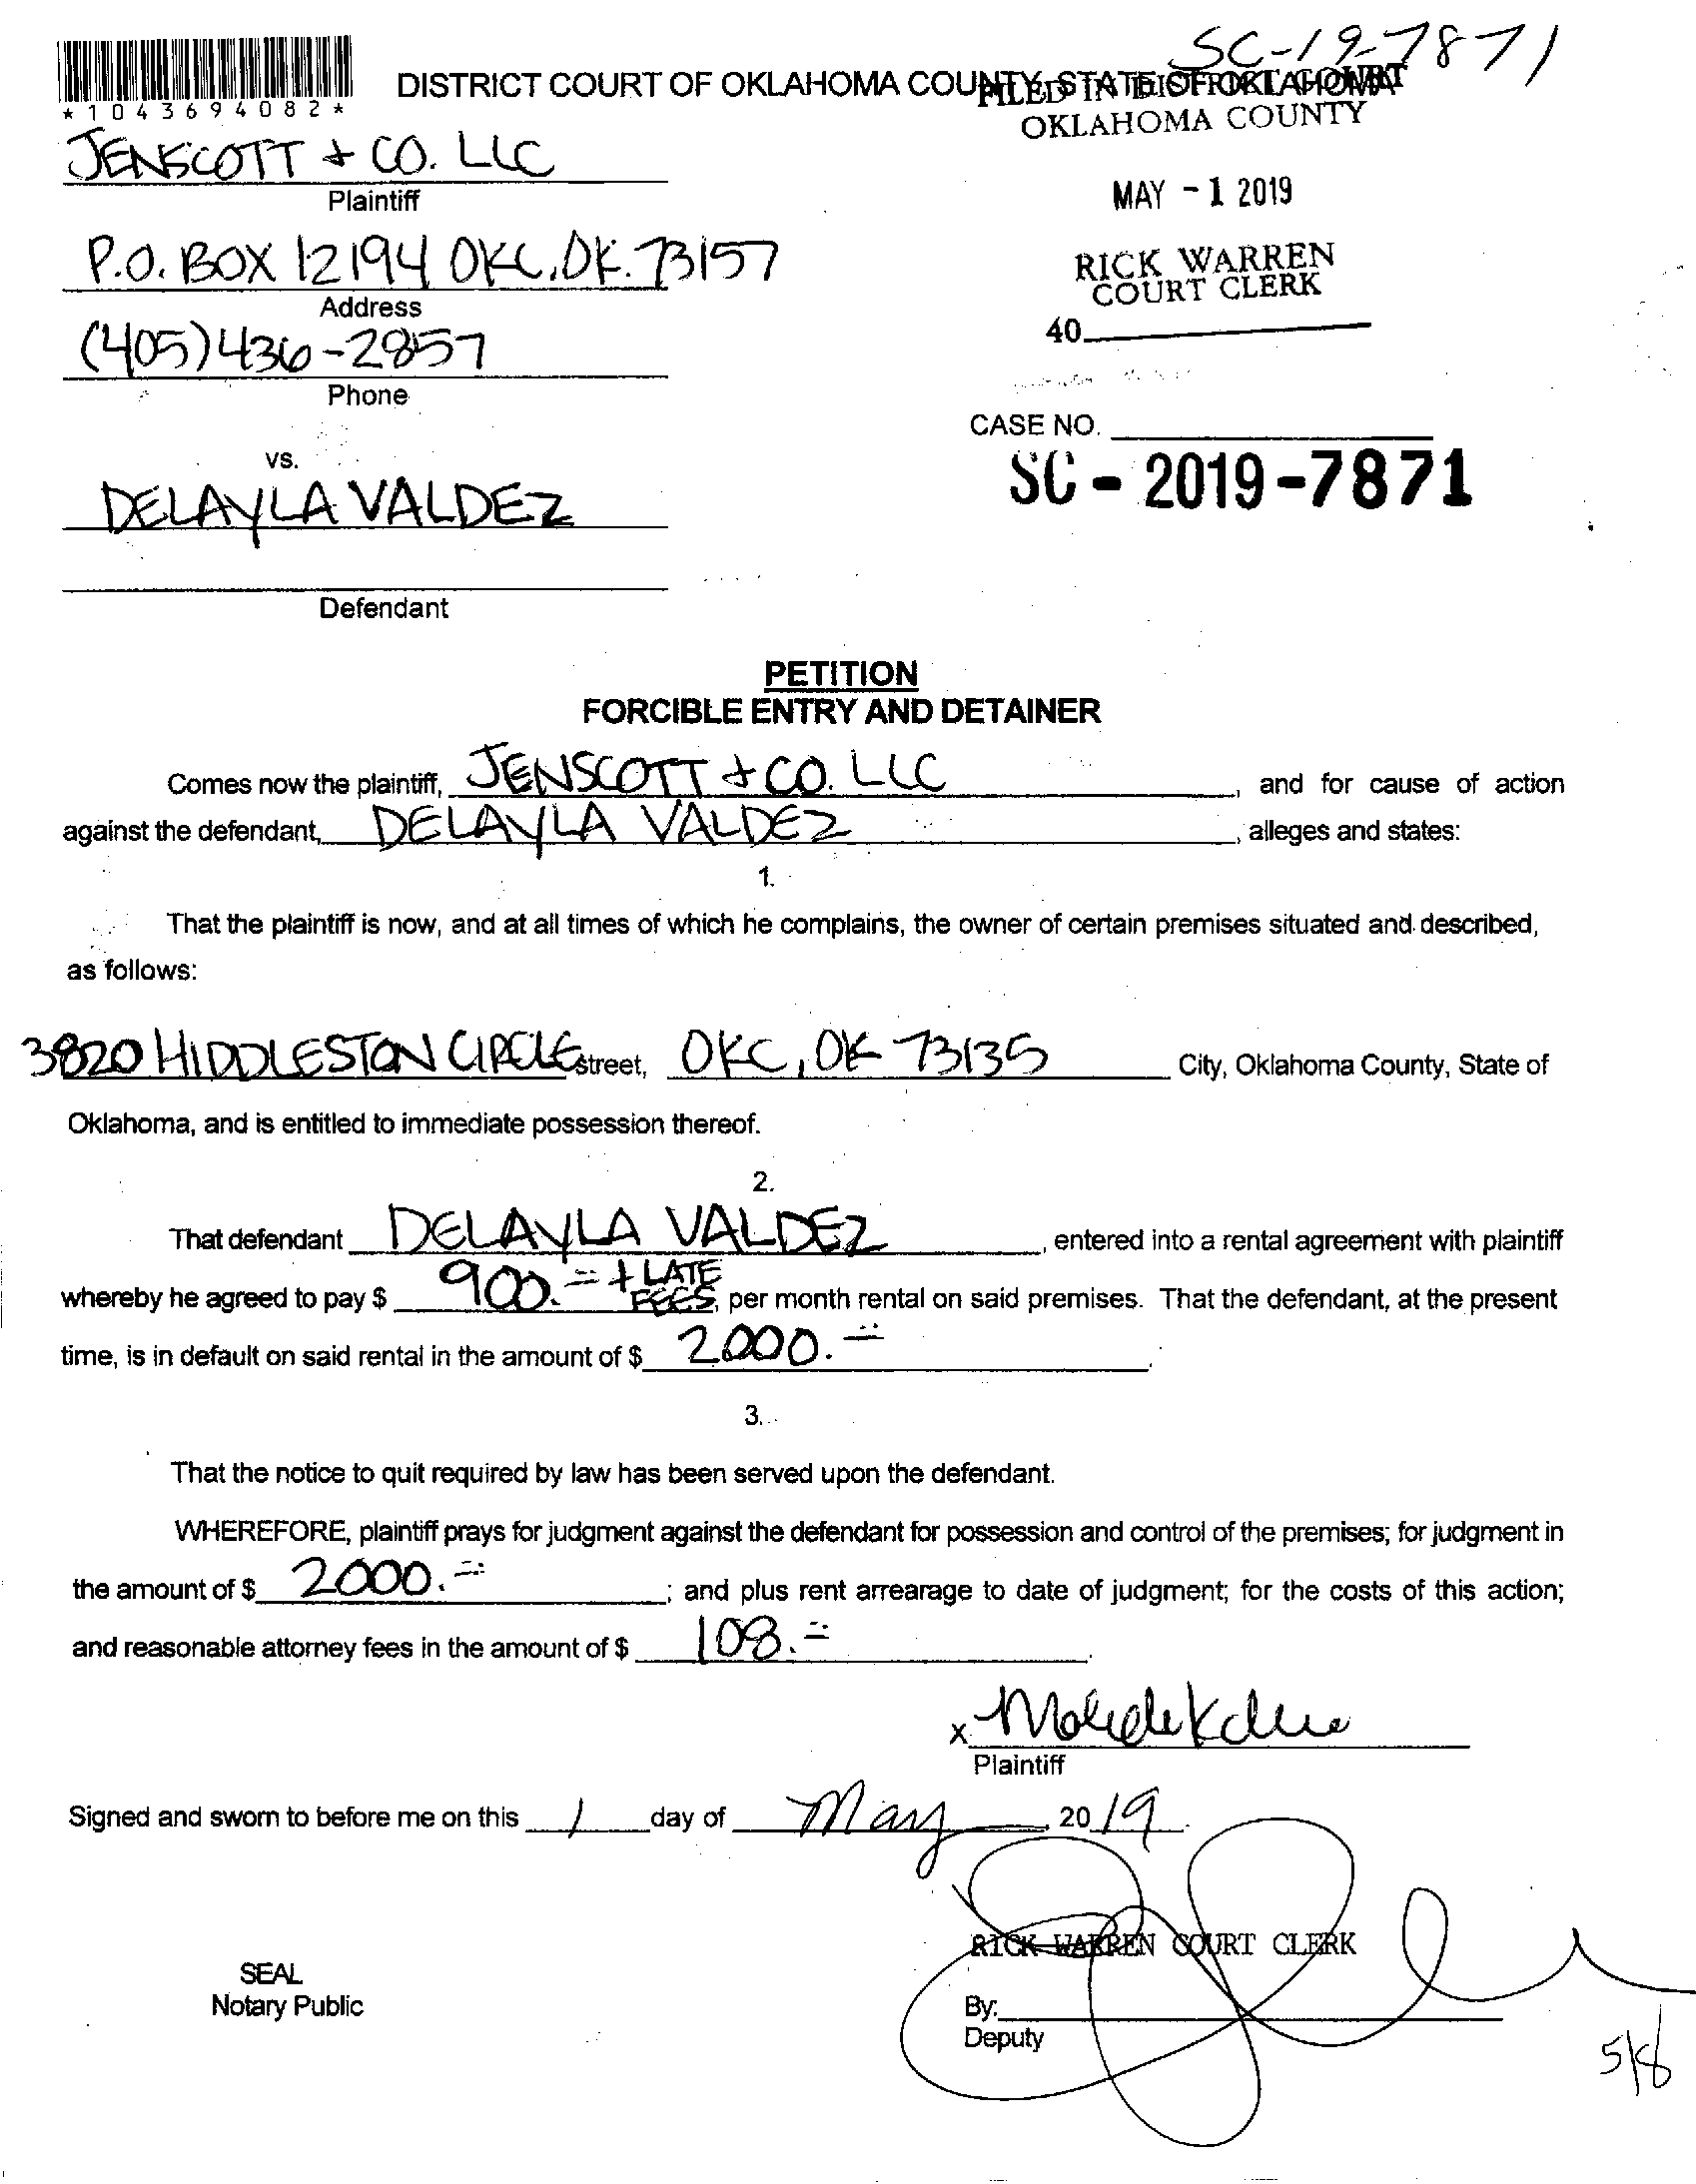 SC-19-7871
DISTRICT COURT OF OKLAHOMA COUNTY, STATE OF OKLAHOMA
FILED IN DISTRICT COURT
OKLAHOMA COUNTY
*1043694082*
JENSCOTT + CO. LLC
Plaintiff
MAY - 1 2019
P.O. BOX 12194 OKC, OK. 73157
Address
RICK WARREN
COURT CLERK
(405) 436-2857
Phone
40
CASE NO.
SC - 2019 - 7871
vs.
DELAYLA VALDEZ
Defendant
PETITION
FORCIBLE ENTRY AND DETAINER
Comes now the plaintiff, JENSCOTT + CO. LLC, and for cause of action
against the defendant, DELAYLA VALDEZ, alleges and states:
1.
That the plaintiff is now, and at all times of which he complains, the owner of certain premises situated and described,
as follows:
3820 HIDDLESTON CIRCLE street, OKC, OK 73135 City, Oklahoma County, State of
Oklahoma, and is entitled to immediate possession thereof.
2.
That defendant DELAYLA VALDEZ, entered into a rental agreement with plaintiff
whereby he agreed to pay $ 900.= + LATE FEES, per month rental on said premises. That the defendant, at the present
time, is in default on said rental in the amount of $ 2000.=.
3.
That the notice to quit required by law has been served upon the defendant.
WHEREFORE, plaintiff prays for judgment against the defendant for possession and control of the premises; for judgment in
the amount of $ 2000.=; and plus rent arrearage to date of judgment; for the costs of this action;
and reasonable attorney fees in the amount of $ 108.=.
x
Plaintiff
Signed and sworn to before me on this 1 day of May, 2019.
RICK WARREN COURT CLERK
SEAL
Notary Public
By:
Deputy
5/8